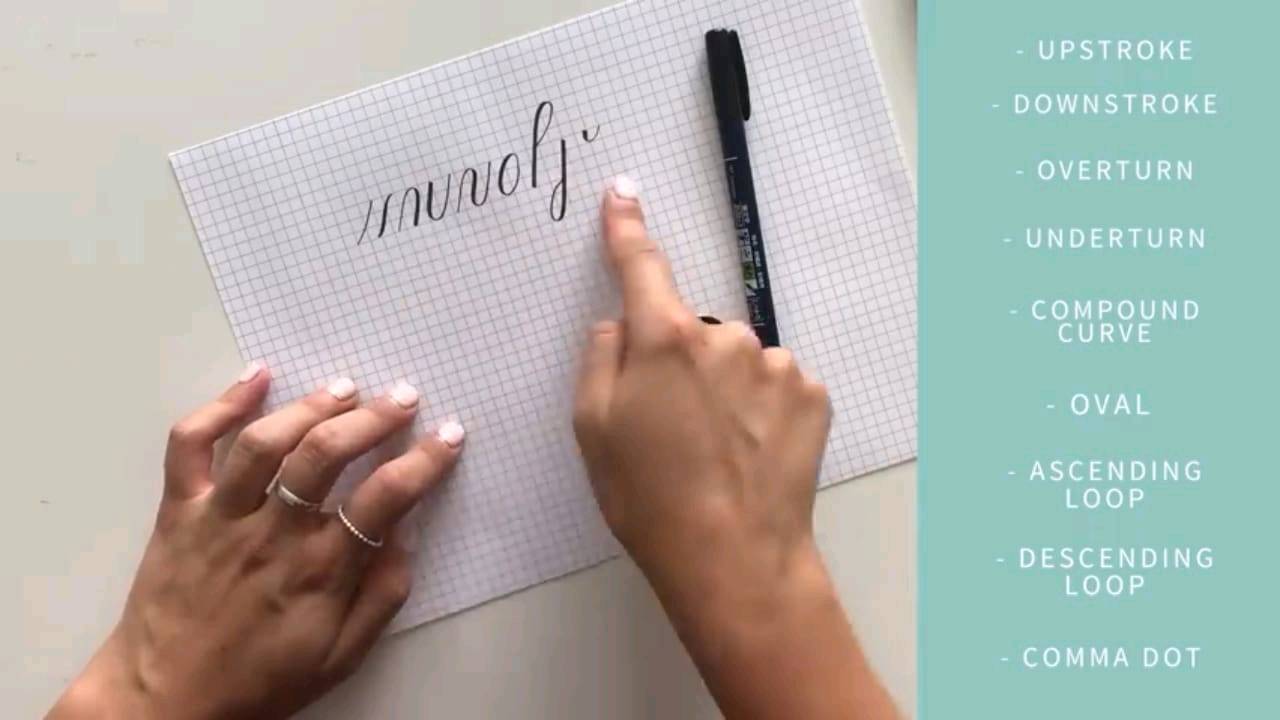 - UPSTROKE
- DOWNSTROKE
- OVERTURN
- UNDERTURN
- COMPOUND
CURVE
- OVAL
- ASCENDING
LOOP
- DESCENDING
LOOP
- COMMA DOT